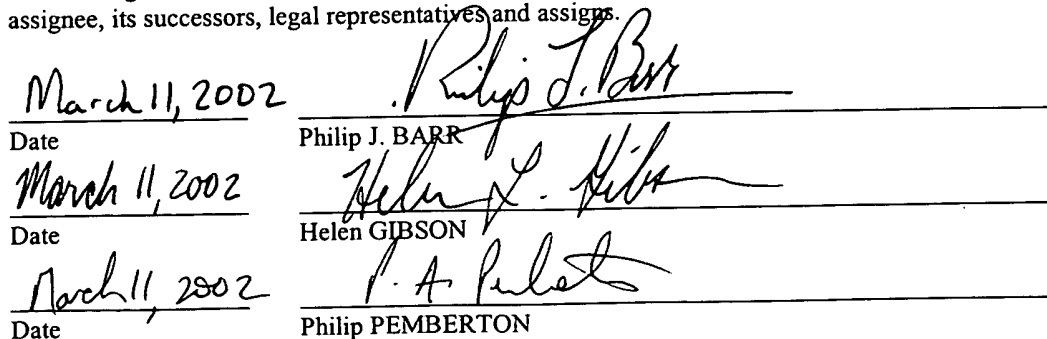 assignee, its successors, legal representatives and assigns.
March 11, 2002 Philip J. Barr
Date Philip J. BARR
March 11, 2002 Helen L. Gibson
Date Helen GIBSON
March 11, 2002 P. A. Pemberton
Date Philip PEMBERTON